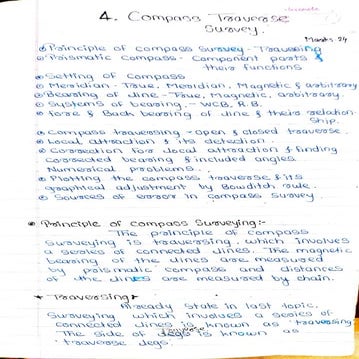 4. Compass Traverse
Survey.
Marks-24
Principle of compass survey - Traversing
Prismatic compass - Component parts &
their functions
Setting of compass
Meridian - True, Meridian, Magnetic & arbitrary
Bearing of line - True, Magnetic, arbitrary.
Systems of bearing. - WCB, R.B.
fore & Back bearing of line & their relation-
ship.
Compass traversing - Open & closed traverse.
Local attraction & its detection.
Correction for local attraction & finding
corrected bearing & included angles.
Numerical problems.
Plotting the compass traverse & its
graphical adjustment by Bowditch rule.
Sources of error in compass survey.
Principle of compass Surveying:-
The principle of compass
surveying is traversing, which involves
a series of connected lines. The magnetic
bearing of the lines are measured
by prismatic compass and distances
of the lines are measured by chain.
* Traversing*
Already state in last topic,
Surveying which involves a series of
connected lines is known as traversing
The side of legs is known as
'traverse legs'.